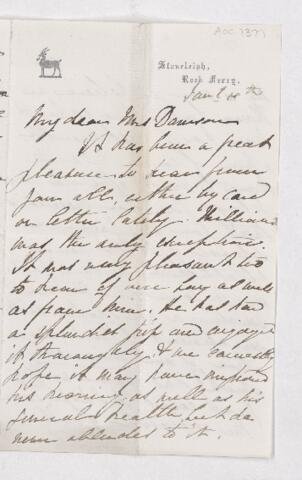 AOC 1371
Stoneleigh,
Rock Ferry.
Jan 28th
My dear Mrs Dawson
It has been a great
pleasure to hear from
you all, either by card
or letter lately. William
was the only exception.
It was very pleasant too
to hear of as well
as from him. He has had
a splendid trip and enjoyed
it thoroughly & we earnestly
hope it may have improved
his hearing as well as his
general health, but he
never alludes to it.